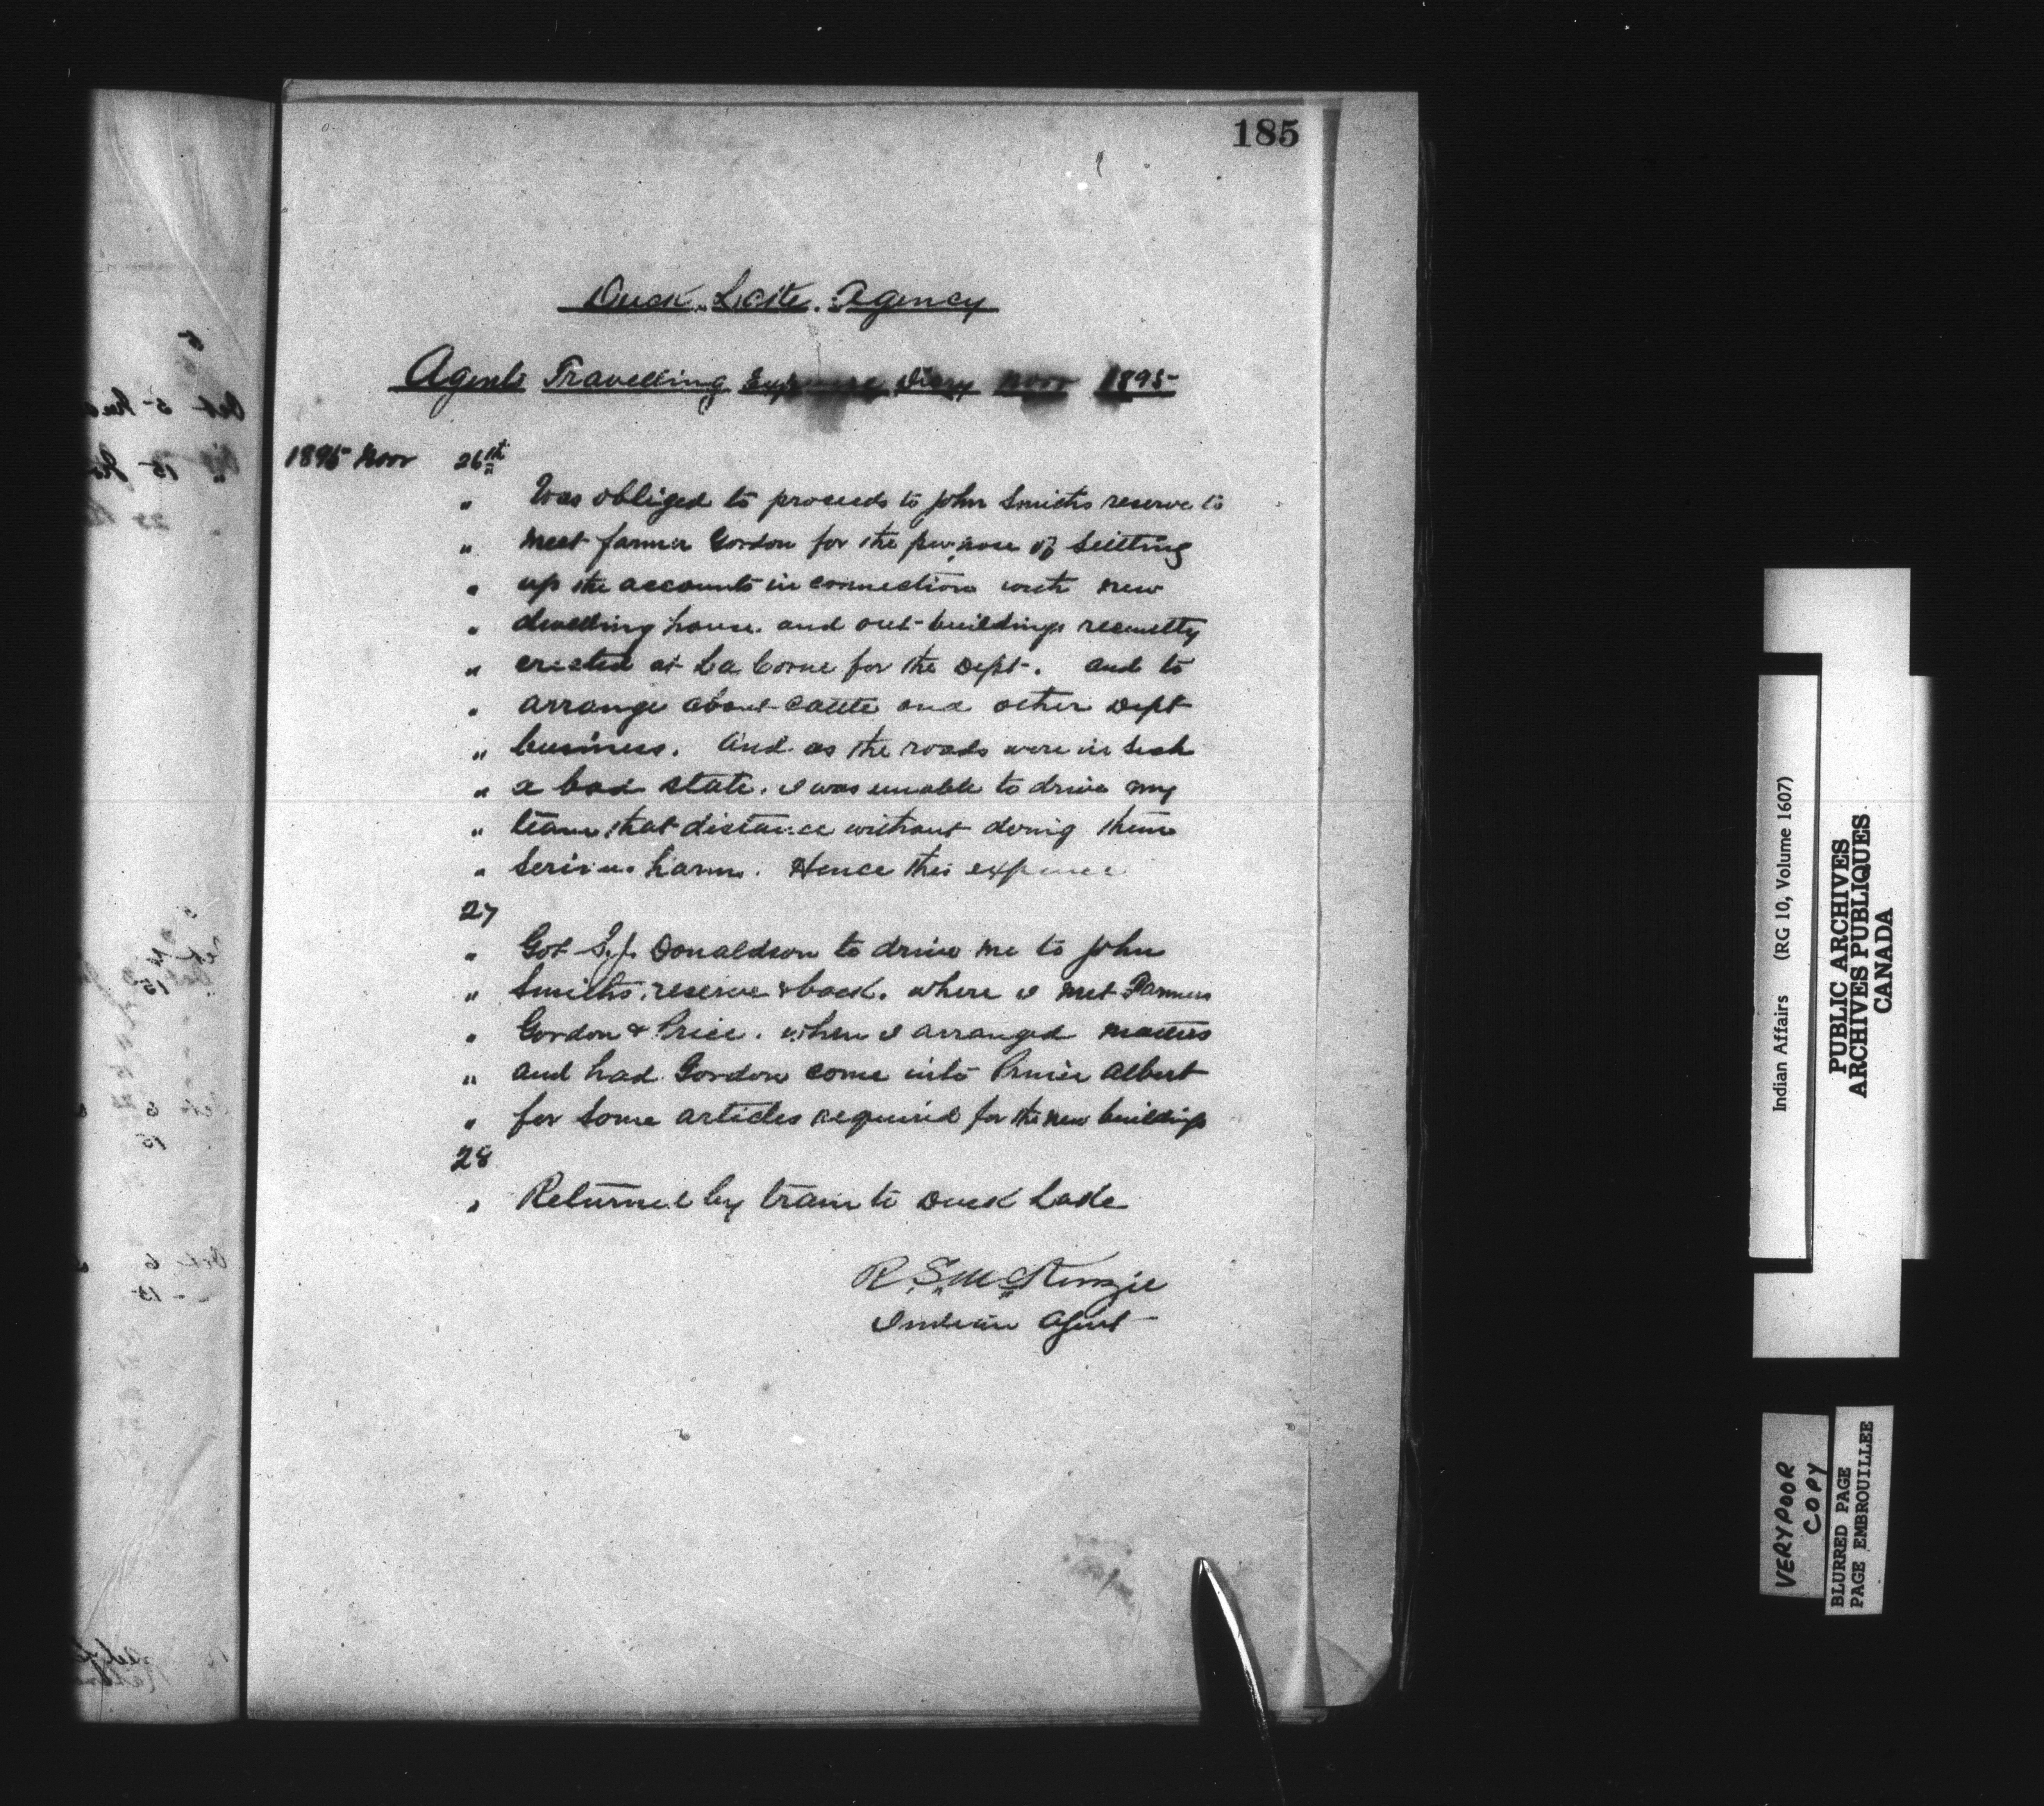 185
Duck Lake Agency
Agents Travelling Expense Diary Novr 1895
1895 Novr 26th
" Was obliged to proceeds to John Smiths reserve to
" meet farmer Gordon for the purpose of Seitting
" up the accounts in connection with new
" dwelling house. and out-buildings recently
" erected at La Corne for the Dept. and to
" arrange about cattle and other Dept
" business. And as the roads were in such
" a bad state. I was unable to drive my
" team that distance without doing them
" serious harm. Hence this expense
27
" Got S.J. Donaldson to drive me to John
" Smiths. reserve & back. where I met Farmers
" Gordon & Price. when I arranged matters
" and had Gordon come into Prince Albert
" for some articles required for the new buildings
28
" Returned by train to Duck Lake
R. S. McKenzie
Indian Agent
Indian Affairs (RG 10, Volume 1607)
PUBLIC ARCHIVES
ARCHIVES PUBLIQUES
CANADA
VERY POOR
COPY
BLURRED PAGE
PAGE EMBROUILLEE